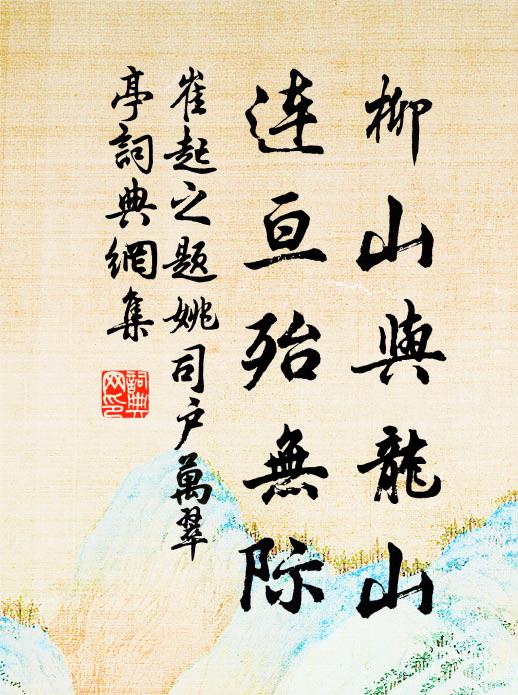 柳山與龍山
連亘殆無际
崔起之题姚司户萬翠
亭詞典網集
詞典
网印